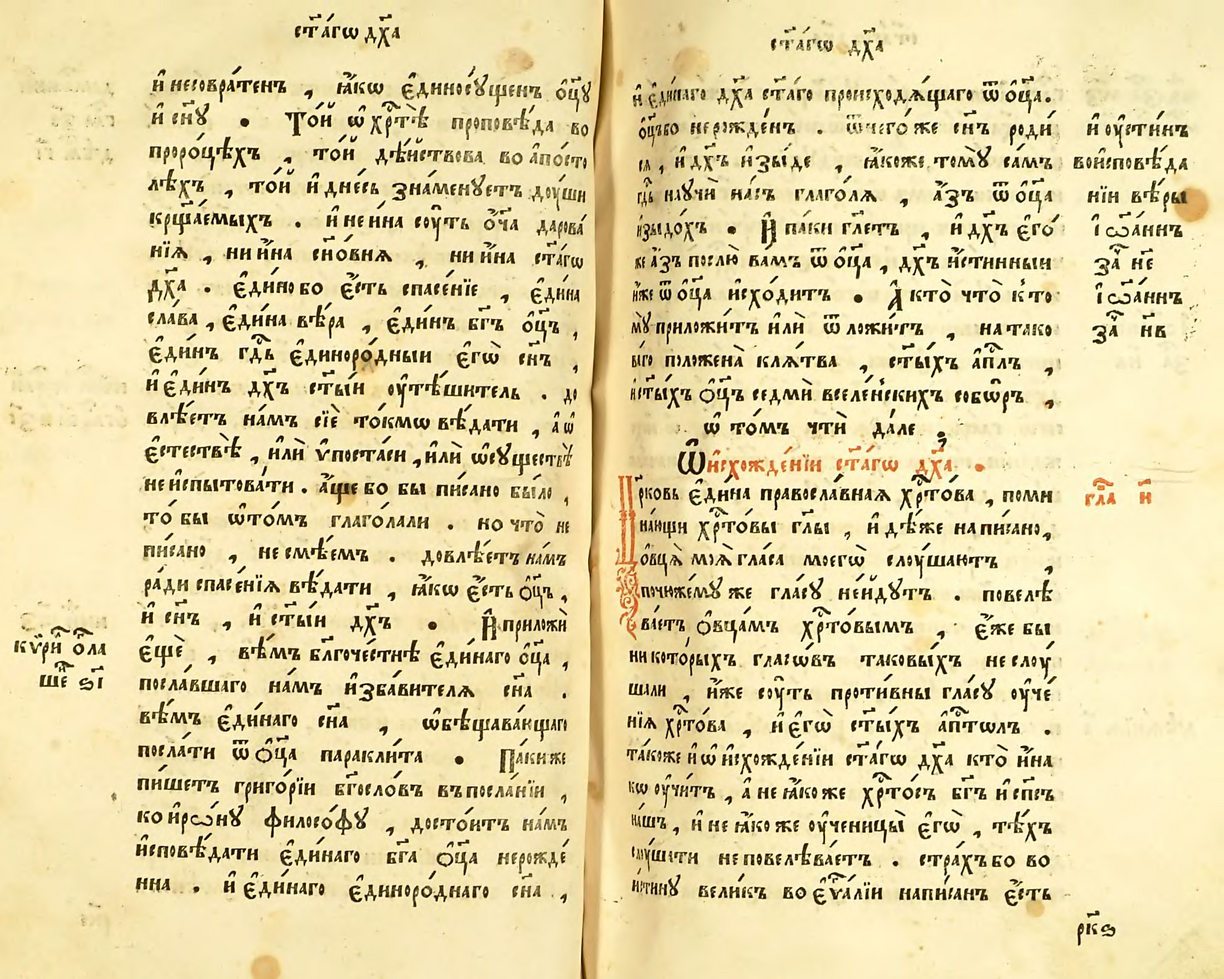 ст҃а́гѡ дх҃а
и҆ несовра́тенъ , ꙗ҆́кѡ є҆диносꙋ́щенъ ѻ҆ц҃ꙋ
и҆ сн҃ꙋ . То́й ѡ҆ хрⷭ҇тѣ̀ проповѣ́да во
проро́цѣхъ , то́й дѣ́йствова во а҆по́сто
лѣхъ , то́й и҆ дне́сь зна́менꙋетъ дꙋ́ши
крща́емыхъ . и҆ не и҆на сꙋ́ть ѻ҆́ч҃а дарова́
нїѧ , ни и҆́на сн҃о́внѧ , ни и҆́на ст҃а́гѡ
дх҃а . є҆ди́но бо є҆́сть спасе́нїе , є҆ди́на
сла́ва , є҆ди́на вѣ́ра , є҆ди́нъ бг҃ъ ѻ҆ц҃ъ ,
є҆ди́нъ гдⷭ҇ь є҆диноро́дныи є҆гѡ̀ сн҃ъ ,
и҆ є҆ди́нъ дх҃ъ ст҃ы́и ᲂу҆тѣ́шитель . до
влѣ́етъ на́мъ сїѐ то́кмѡ вѣ́дати , а҆ ѡ҆
є҆стествѣ̀ , и҆лѝ ѵ҆поста́си , и҆лѝ ѡ҆ сꙋществѣ̀
не и҆спытова́ти . а҆́ще бо бы пи́сано бы́ло ,
то́ бы ѡ҆ то́мъ глаго́лали . но что̀ не
пи́сано , не смѣ́ем . довлѣ́етъ на́мъ
ра́ди спасе́нїѧ вѣ́дати , ꙗ҆́кѡ є҆́сть ѻ҆ц҃ъ ,
и҆ сн҃ъ , и҆ ст҃ы́и дх҃ъ . И҆ приложи
є҆щѐ , вѣ́мъ бл҃гоче́стнѣ є҆ди́наго ѻ҆ц҃а ,
посла́вшаго на́мъ и҆зба́вителѧ сн҃а .
вѣ́мъ є҆ди́наго сн҃а , ѡ҆бѣщава́ющаго
посла́ти ѿ ѻ҆ц҃а паракли́та . Па́ки же
пи́шетъ григо́рїи бг҃осло́въ въ посла́нїи ,
ко и҆рѡ́нꙋ филосо́фꙋ , досто́итъ на́мъ
и҆сповѣ́дати є҆ди́наго бг҃а ѻ҆ц҃а нерожде́
нна . и҆ є҆ди́наго є҆диноро́днаго сн҃а ,
кѷ́рил ѻ҆гла
ше ѕ҃і
ст҃а́гѡ дх҃а
и҆ є҆ди́наго дх҃а ст҃а́го происходѧ́щаго ѿ ѻ҆ц҃а .
ѻ҆ц҃ъ бо нерожде́нъ . ѿ него́ же сн҃ъ роди́
сѧ , и҆ дх҃ъ и҆зы́де , ꙗ҆́коже томꙋ̀ са́мъ
гдⷭ҇ь наꙋчѝ на́съ глаго́лѧ , а҆́зъ ѿ ѻ҆ц҃а
и҆зыдо́хъ . И҆ па́ки гл҃етъ , и҆ дх҃ъ є҆го́
же а҆́зъ послю̀ ва́мъ ѿ ѻ҆ц҃а , дх҃ъ и҆́стинныи
и҆́же ѿ ѻ҆ц҃а и҆схо́дитъ . А҆ кто̀ что̀ к то
мꙋ̀ приложи́тъ и҆лѝ ѿложи́тъ , на тако
ва́го положена̀ клѧ́тва , ст҃ы́хъ а҆пⷭ҇лъ ,
и҆ ст҃ы́хъ ѻ҆ц҃ъ седмѝ вселе́нскихъ собѡ́ръ ,
ѡ҆ то́мъ чтѝ да́ле .
Ѡ҆ и҆схожде́нїи ст҃а́гѡ дх҃а .
Цр҃ковь є҆ди́на правосла́внаѧ хрⷭ҇то́ва , поми
на́ющи хрⷭ҇то́вы гл҃ы , и҆дѣ́же напи́сано ,
ѻ҆́вцѧ моѧ̀ гла́са моегѡ̀ слꙋ́шаютъ ,
по чюже́мꙋ же гла́сꙋ не и҆́дꙋтъ . повелѣ
ва́етъ ѻ҆вца́мъ хрⷭ҇то́вымъ , є҆́же бы
ни кото́рыхъ гласѡ́въ таковы́хъ не слꙋ́
шали , и҆́же сꙋ́ть проти́вны гла́сꙋ ᲂу҆че́
нїѧ хрⷭ҇то́ва , и҆ є҆гѡ̀ ст҃ы́хъ а҆пⷭ҇толъ .
та́коже и҆ ѡ҆ и҆схожде́нїи ст҃а́гѡ дх҃а кто̀ и҆́на
кѡ ᲂу҆чи́тъ , а҆ не ꙗ҆́коже хрⷭ҇то́съ бг҃ъ и҆ сп҃съ
на́шъ , и҆ не ꙗ҆́коже ᲂу҆ченицы̀ є҆гѡ̀ , тѣ́хъ
слꙋ́шати не повелѣва́етъ . стра́хъ бо во
и҆́стинꙋ вели́къ во є҆ѵⷢ҇а́лїи напи́сан є҆́сть
и҆ ᲂу҆сти́нъ
во и҆сповѣ́да
нїи вѣ́ры
і҆ѡа́ннъ
за не
і҆ѡа́ннъ
за нв
гла и҃
рк҃ѕ